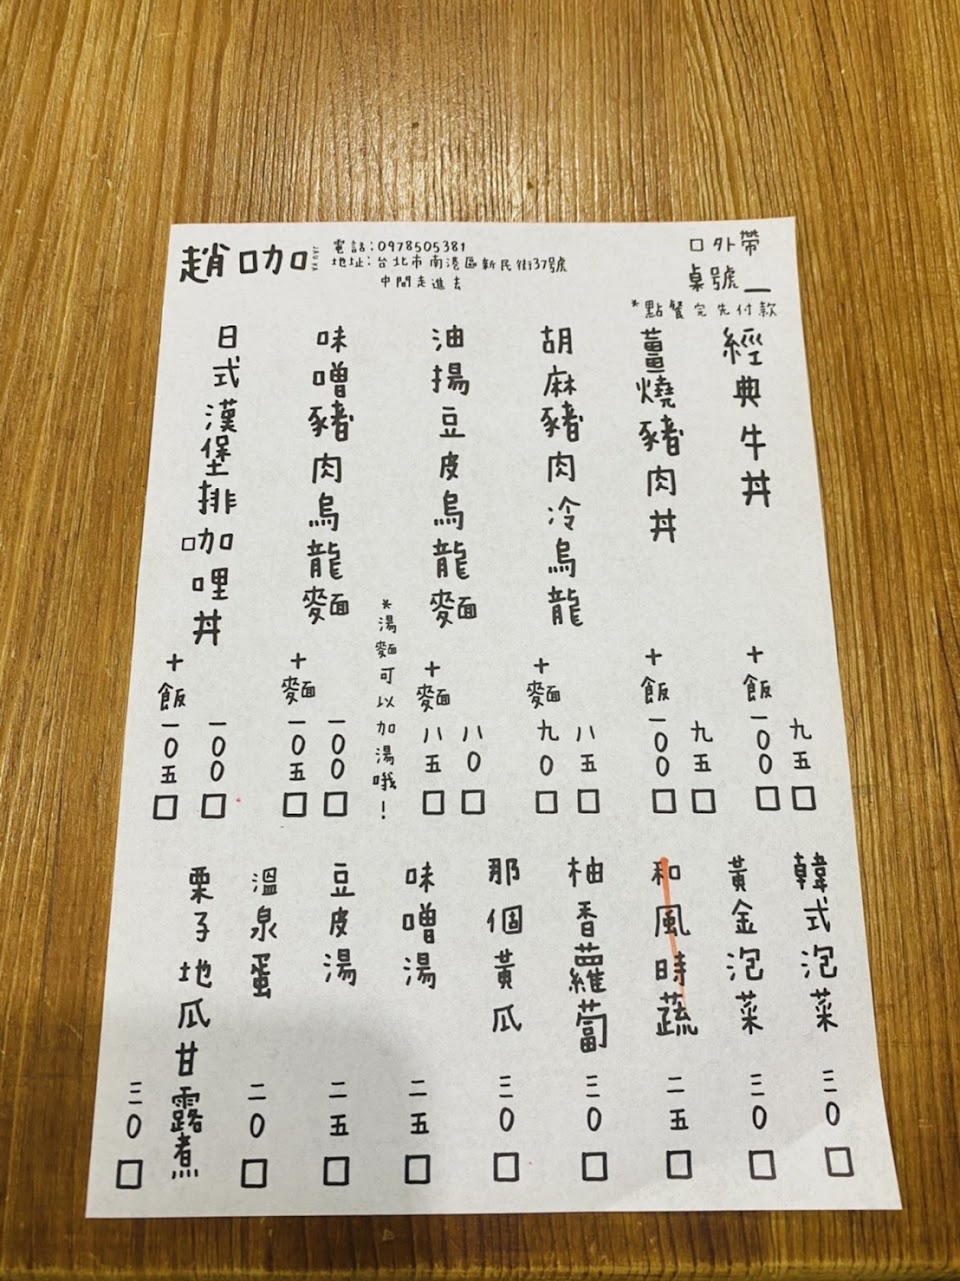 趙口咖
電話：0978505381
地址：台北市南港區新民街37號
中間走進去
口外帶
桌號__
*點餐完先付款
經典牛丼
九五
+飯一00
薑燒豬肉丼
九五
+飯一00
胡麻豬肉冷烏龍
八五
+麵九0
油揚豆皮烏龍麵
八0
+麵八五
*湯麵可以加湯哦！
味噌豬肉烏龍麵
一00
+麵一0五
日式漢堡排咖哩丼
一00
+飯一0五
韓式泡菜 三0
黃金泡菜 三0
和風時蔬 二五
柚香蘿蔔 三0
那個黃瓜 三0
味噌湯 二五
豆皮湯 二五
溫泉蛋 二0
栗子地瓜甘露煮 三0